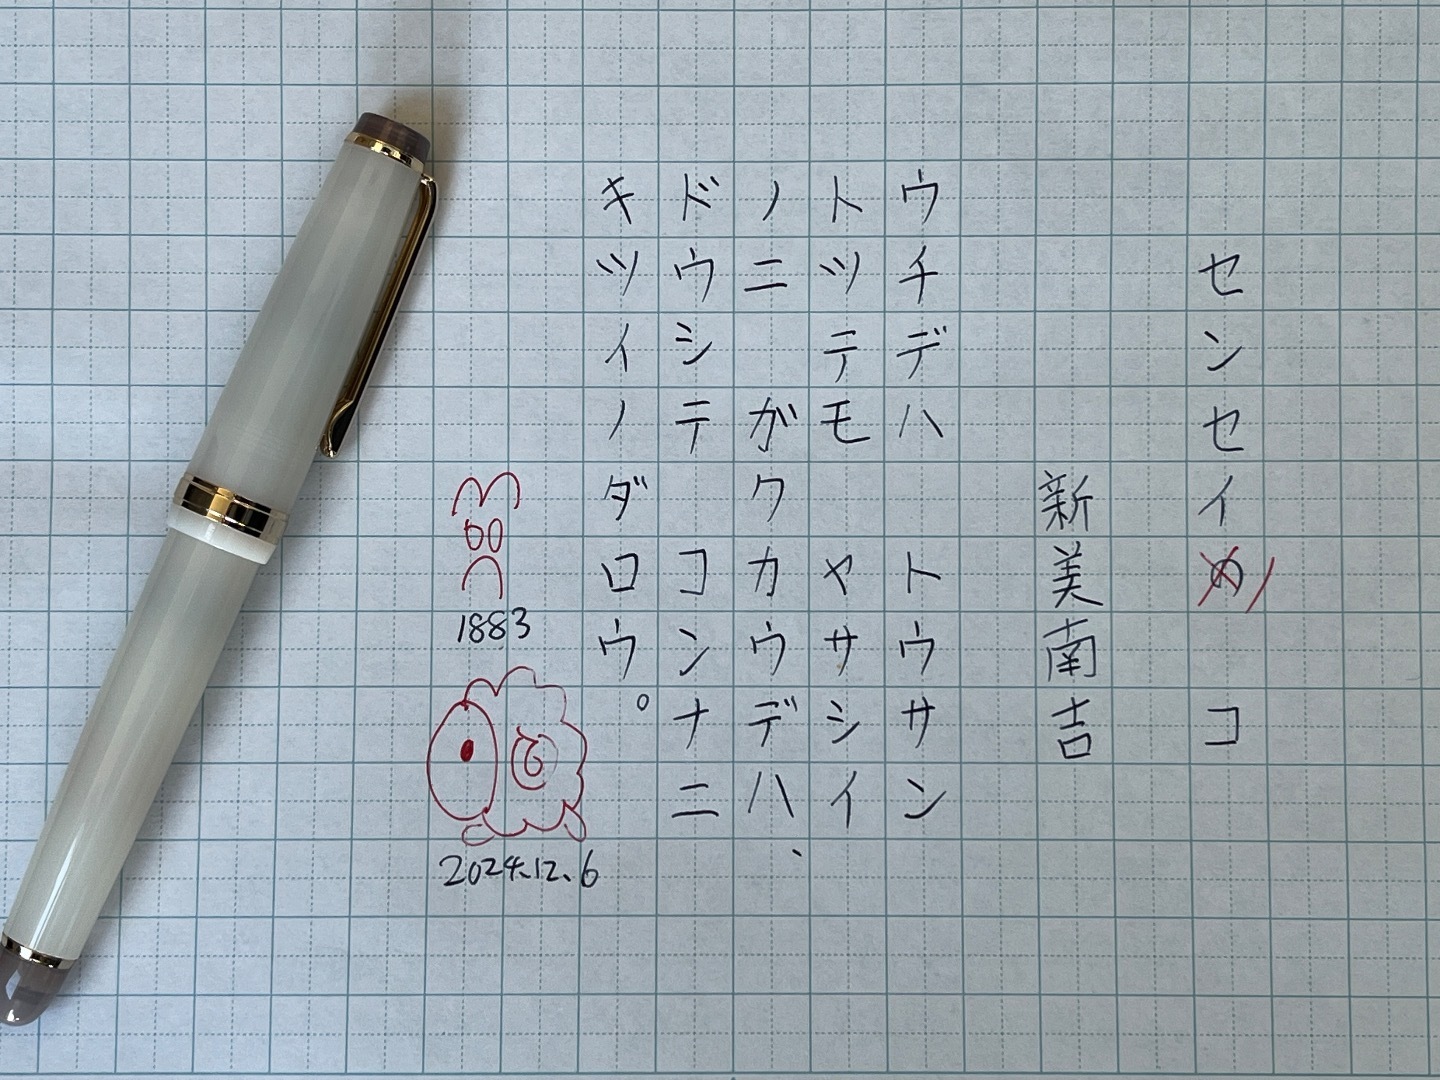 センセイノ コ
新美南吉
ウチデハ トウサン
トツテモ ヤサシイ
ノニ ガクカウデハ、
ドウシテ コンナニ
キツイノダロウ。
1883
2024.12.6